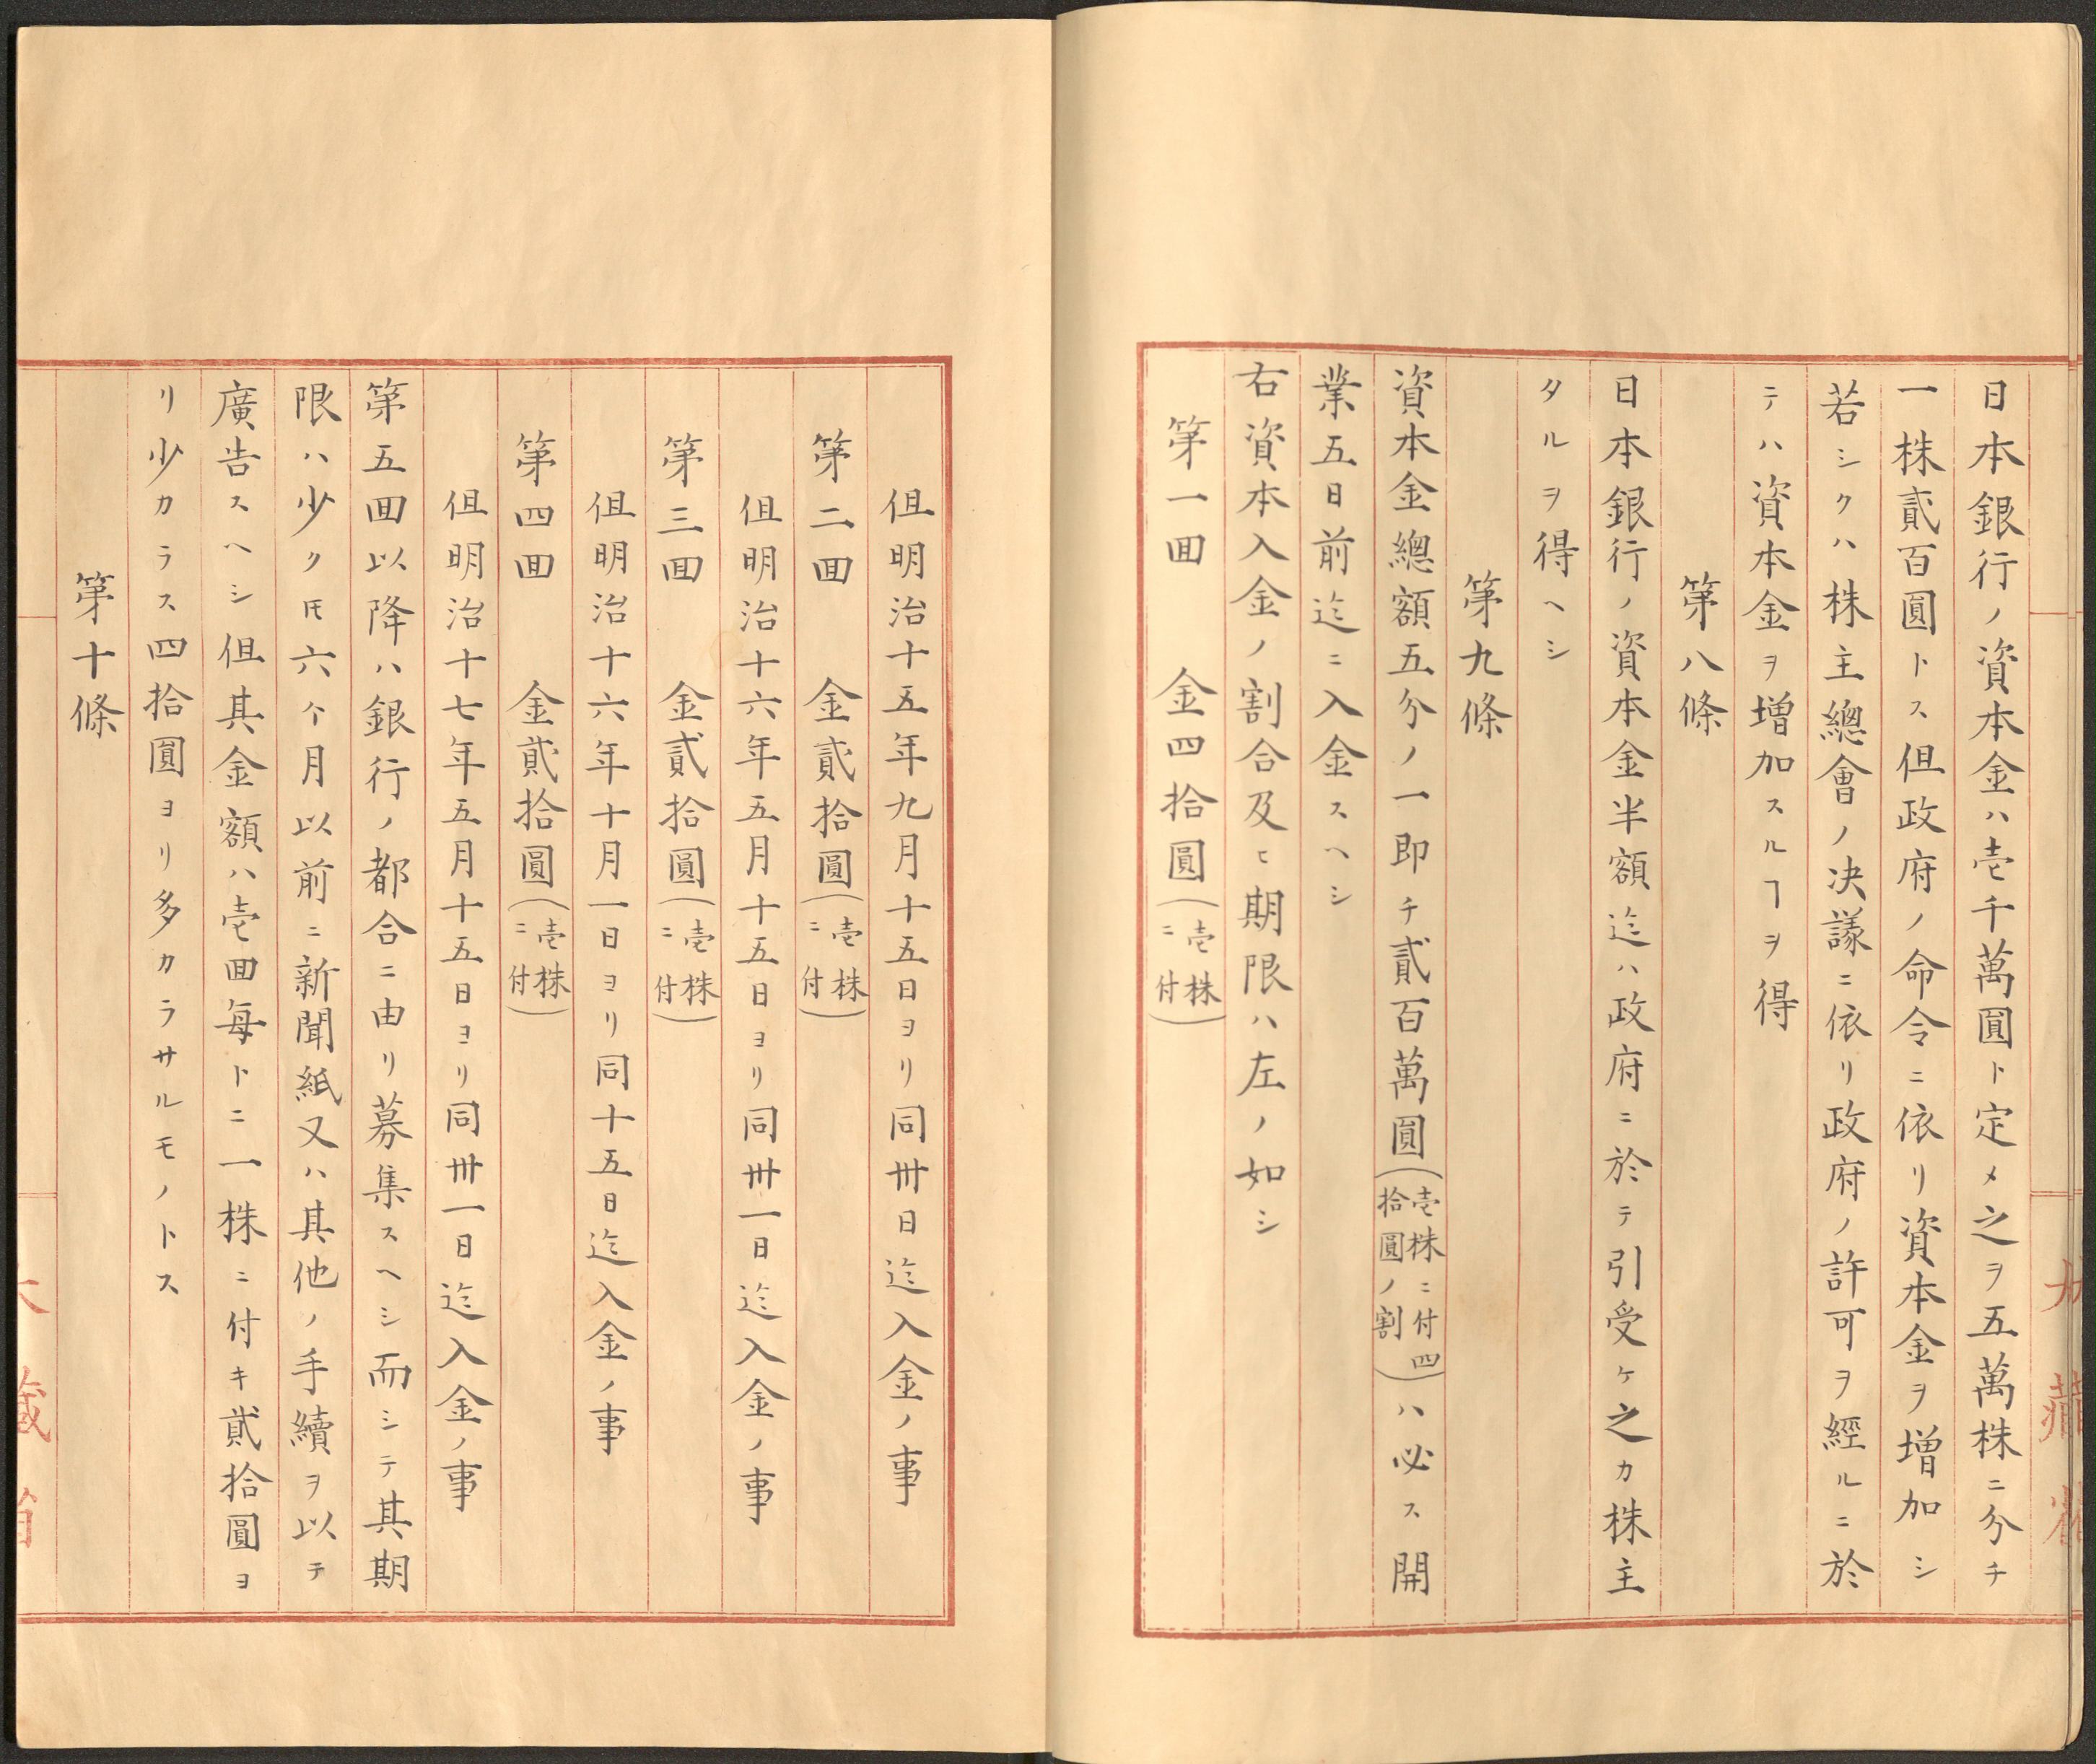 日本銀行ノ資本金ハ壱千萬圓ト定メ之ヲ五萬株ニ分チ
一株貳百圓トス但政府ノ命令ニ依リ資本金ヲ増加シ
若シクハ株主總會ノ决議ニ依リ政府ノ許可ヲ經ルニ於
テハ資本金ヲ増加スルヿヲ得
第八條
日本銀行ノ資本金半額迄ハ政府ニ於テ引受ケ之カ株主
タルヲ得ヘシ
第九條
資本金總額五分ノ一即チ貳百萬圓(壱株ニ付四拾圓ノ割)ハ必ス開
業五日前迄ニ入金スヘシ
右資本入金ノ割合及ヒ期限ハ左ノ如シ
第一回 金四拾圓(壱株ニ付)
但明治十五年九月十五日ヨリ同卅日迄入金ノ事
第二回 金貳拾圓(壱株ニ付)
但明治十六年五月十五日ヨリ同卅一日迄入金ノ事
第三回 金貳拾圓(壱株ニ付)
但明治十六年十月一日ヨリ同十五日迄入金ノ事
第四回 金貳拾圓(壱株ニ付)
但明治十七年五月十五日ヨリ同卅一日迄入金ノ事
第五回以降ハ銀行ノ都合ニ由リ募集スヘシ而シテ其期
限ハ少クモ六个月以前ニ新聞紙又ハ其他ノ手續ヲ以テ
廣告スヘシ但其金額ハ壱回毎トニ一株ニ付キ貳拾圓ヨ
リ少カラス四拾圓ヨリ多カラサルモノトス
第十條